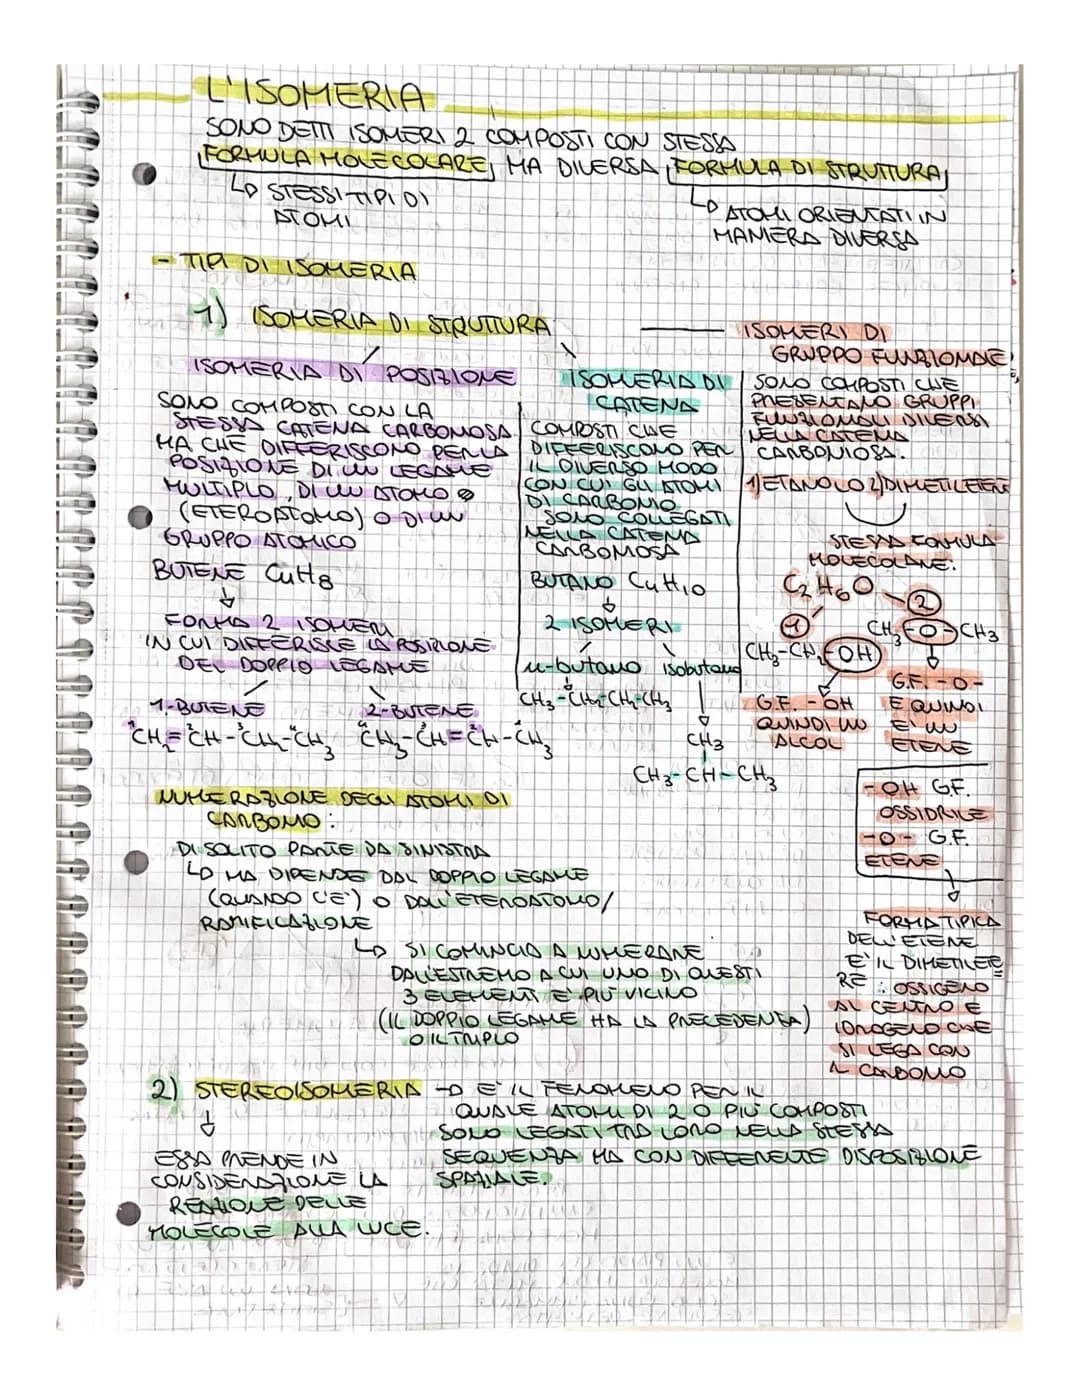 L'ISOMERIA
SONO DETTI ISOMERI 2 COMPOSTI CON STESSA
FORMULA MOLECOLARE, MA DIVERSA FORMULA DI STRUTTURA
↳ STESSI TIPI DI
ATOMI
↳ ATOMI ORIENTATI IN
MANIERA DIVERSA
- TIPI DI ISOMERIA
1) ISOMERIA DI STRUTTURA
ISOMERIA DI POSIZIONE
SONO COMPOSTI CON LA
STESSA CATENA CARBONIOSA
MA CHE DIFFERISCONO PER LA
POSIZIONE DI UN LEGAME
MULTIPLO, DI UN ATOMO
(ETEROATOMO) O DI UN
GRUPPO ATOMICO
BUTENE C4H8
↓
FORMA 2 ISOMERI
IN CUI DIFFERISCE LA POSIZIONE
DEL DOPPIO LEGAME
1-BUTENE
1CH2=2CH-3CH2-4CH3
2-BUTENE
4CH3-3CH=2CH-1CH3
ISOMERIA DI
CATENA
COMPOSTI CHE
DIFFERISCONO PER
IL DIVERSO MODO
CON CUI GLI ATOMI
DI CARBONIO
SONO COLLEGATI
NELLA CATENA
CARBONIOSA
BUTANO C4H10
↓
2 ISOMERI
n-butano isobutano
CH3-CH2-CH2-CH3
CH3
CH3-CH-CH3
ISOMERI DI
GRUPPO FUNZIONALE
SONO COMPOSTI CHE
PRESENTANO GRUPPI
FUNZIONALI DIVERSI
NELLA CATENA
CARBONIOSA.
1) ETANOLO 2) DIMETILETERE
STESSA FORMULA
MOLECOLARE:
C2H6O
1
CH3-CH2-OH
G.F. -OH
QUINDI UN
ALCOL
2
CH3-O-CH3
G.F. -O-
E QUINDI
E' UN
ETERE
-OH G.F.
OSSIDRILE
-O- G.F.
ETERE
FORMA TIPICA
DELL'ETERE
E' IL DIMETILETE=
RE : OSSIGENO
AL CENTRO E
IDROGENO CHE
SI LEGA CON
IL CARBONIO
NUMERAZIONE DEGLI ATOMI DI
CARBONIO:
DI SOLITO PARTE DA SINISTRA
↳ MA DIPENDE DAL DOPPIO LEGAME
(QUANDO C'E') O DALL'ETEROATOMO/
RAMIFICAZIONE
↳ SI COMINCIA A NUMERARE
DALL'ESTREMO A CUI UNO DI QUESTI
3 ELEMENTI E' PIU' VICINO
(IL DOPPIO LEGAME HA LA PRECEDENZA)
O IL TRIPLO
2) STEREOISOMERIA → E' IL FENOMENO PER IL
QUALE ATOMI DI 2 O PIU' COMPOSTI
SONO LEGATI TRA LORO NELLA STESSA
SEQUENZA MA CON DIFFERENTE DISPOSIZIONE
SPAZIALE.
↓
ESSA PRENDE IN
CONSIDERAZIONE LA
REAZIONE DELLE
MOLECOLE ALLA LUCE.